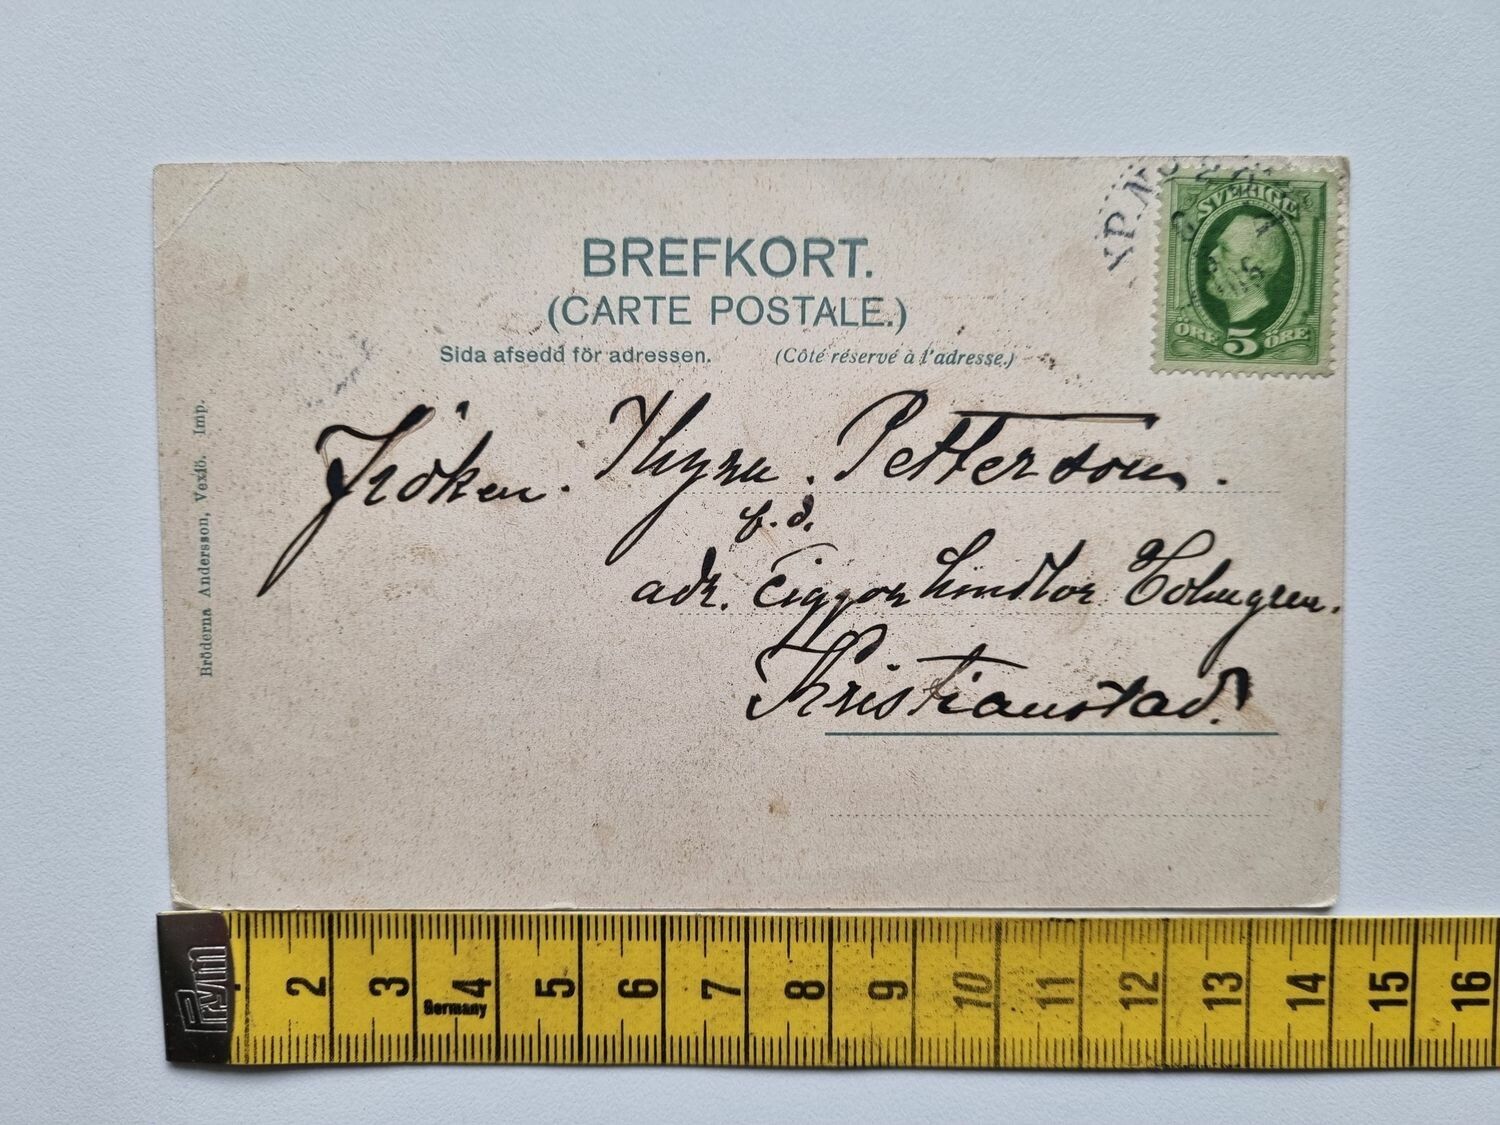 BREFKORT.
(CARTE POSTALE.)
Sida afsedd för adressen. (Côté réservé à l'adresse.)
SVERIGE
ÖRE 5 ÖRE
Fröken. Thyra. Petterson.
f.d.
adr. Ciggarhandlar Holmgren.
Kristianstad.
Bröderna Andersson, Vexiö. Imp.
Prym
2 3 4 5 6 7 8 9 10 11 12 13 14 15 16
Germany